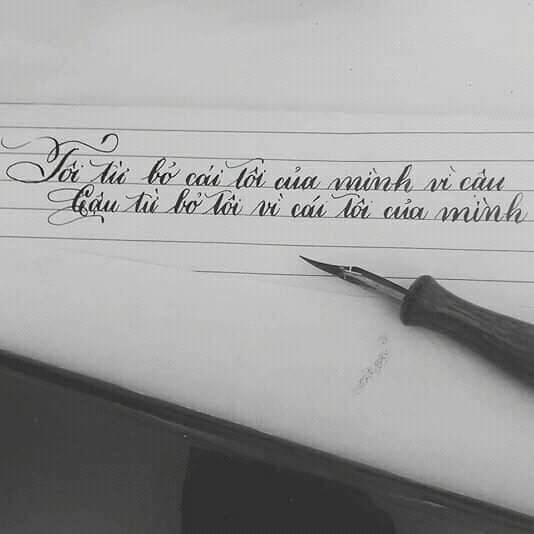 Tôi từ bỏ cái tôi của mình vì cậu
Cậu từ bỏ tôi vì cái tôi của mình